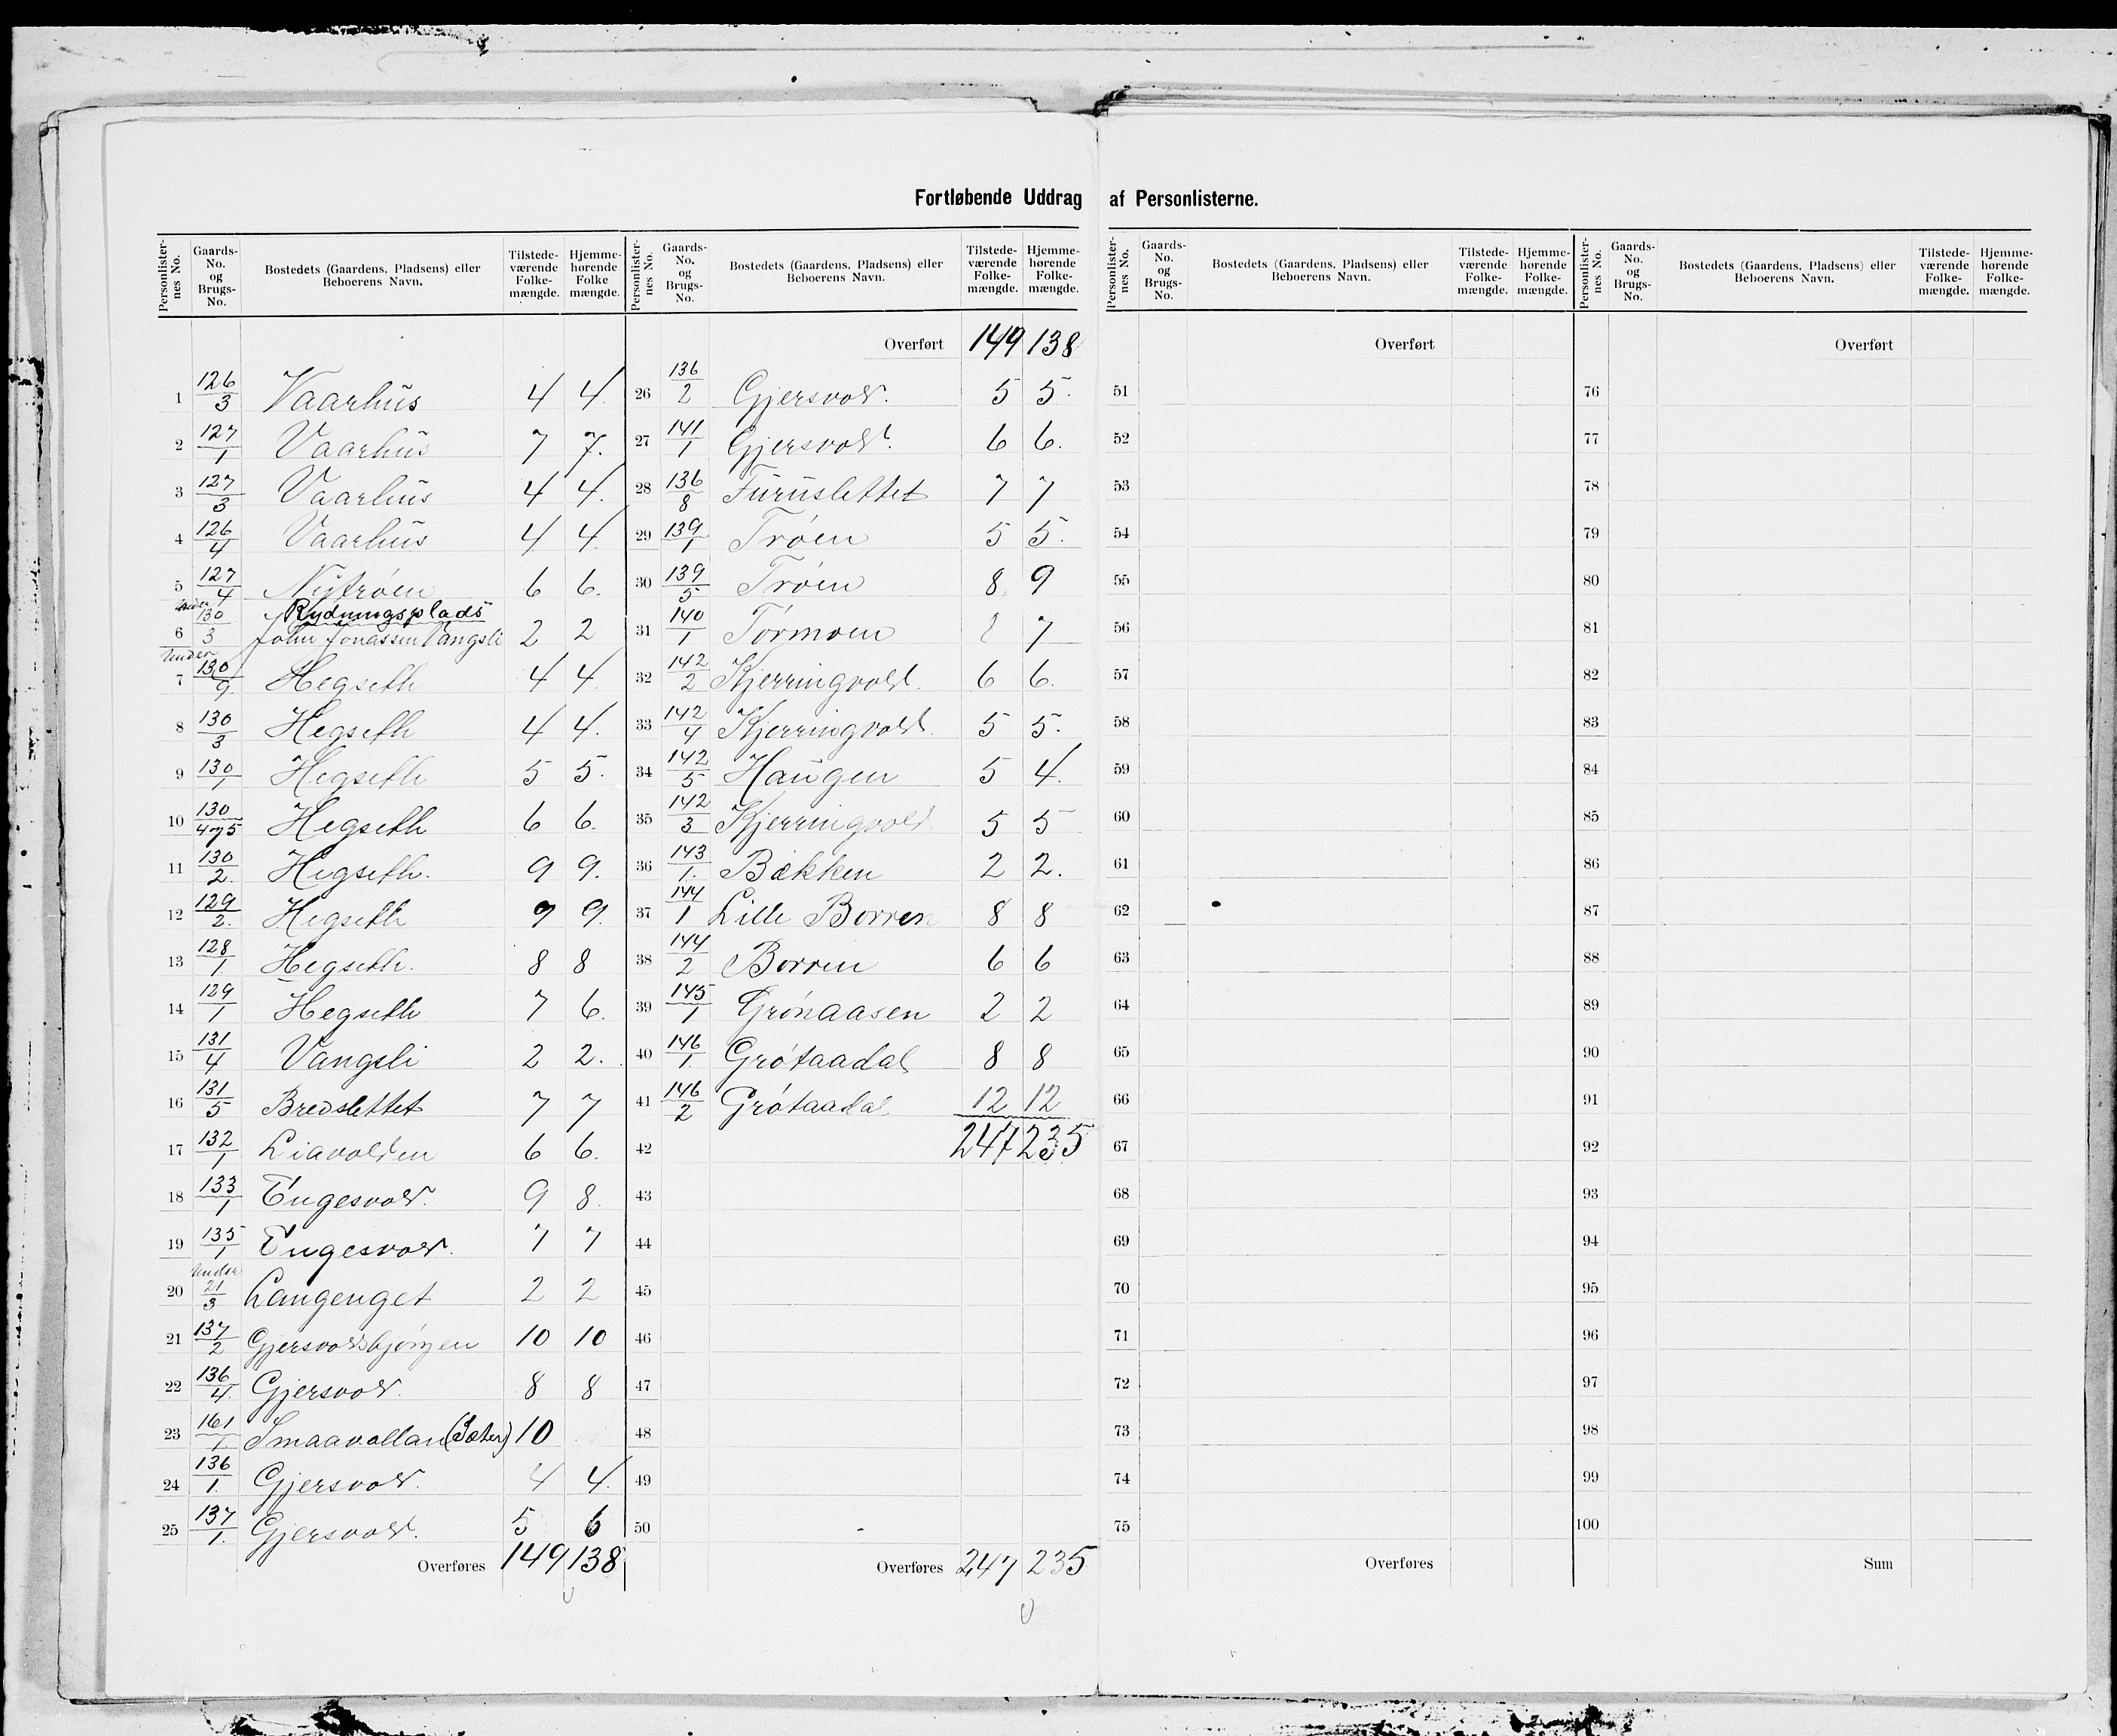 Fortløbende Uddrag af Personlisterne.
Personlister-nes No. Gaards-No. og Brugs-No. Bostedets (Gaardens, Pladsens) eller Beboerens Navn. Tilstede-værende Folke-mængde. Hjemme-hørende Folke mængde.
1 126/3 Vaarhus 4 4.
2 127/1 Vaarhus 7 7.
3 127/3 Vaarhus 4 4.
4 126/4 Vaarhus 4 4
5 127/4 Nytrøen 6 6.
Under Rydningsplads
6 130/3 John Jonassen Vangsli 2 2
Under
7 130/9 Hegseth 4 4.
8 130/3 Hegseth 4 4.
9 130/1 Hegseth 5 5.
10 130/4 og 5 Hegseth 6 6.
11 130/2. Hegseth. 9 9.
12 129/2. Hegseth 9 9.
13 128/1 Hegseth. 8 8
14 129/1 Hegseth 7 6.
15 131/4 Vangsli 2 2.
16 131/5 Bredslettet 7 7
17 132/1 Liavolden 6 6.
18 133/1 Engesvold. 9 8.
19 135/1 Engesvold. 7 7
Under
20 21/3 Langenget 2 2
21 137/2 Gjersvoldsbjørgen 10 10
22 136/4. Gjersvold. 8 8
23 161/1 Smaavollan (Sæter) 10
24 136/1. Gjersvold. 4 4.
25 137/1. Gjersvold. 5 6
Overføres 149 138
Personlister-nes No. Gaards-No. og Brugs-No. Bostedets (Gaardens, Pladsens) eller Beboerens Navn. Tilstede-værende Folke-mængde. Hjemme-hørende Folke-mængde.
Overført 149 138
26 136/2 Gjersvold. 5 5.
27 141/1 Gjersvold. 6 6.
28 136/8 Furuslettet 7 7
29 139/1 Trøen 5 5.
30 139/5 Trøen 8 9
31 140/1 Tørmoen 8 7
32 142/2 Kjerringvold. 6 6.
33 142/4 Kjerringvold. 5 5.
34 142/5 Haugen 5 4.
35 142/3 Kjerringvold 5 5
36 143/1. Bækken 2 2.
37 144/1 Lille Borren 8 8
38 144/2 Borren 6 6
39 145/1 Grønaasen 2 2
40 146/1. Grøtaadal 8 8
41 146/2 Grøtaadal 12 12
42 247 235
43
44
45
46
47
48
49
50
Overføres 247 235
Personlister-nes No. Gaards-No. og Brugs-No. Bostedets (Gaardens, Pladsens) eller Beboerens Navn. Tilstede-værende Folke-mængde. Hjemme-hørende Folke-mængde.
Overført
51
52
53
54
55
56
57
58
59
60
61
62
63
64
65
66
67
68
69
70
71
72
73
74
75
Overføres
Personlister-nes No. Gaards-No. og Brugs-No. Bostedets (Gaardens, Pladsens) eller Beboerens Navn. Tilstede-værende Folke-mængde. Hjemme-hørende Folke-mængde.
Overført
76
77
78
79
80
81
82
83
84
85
86
87
88
89
90
91
92
93
94
95
96
97
98
99
100
Sum